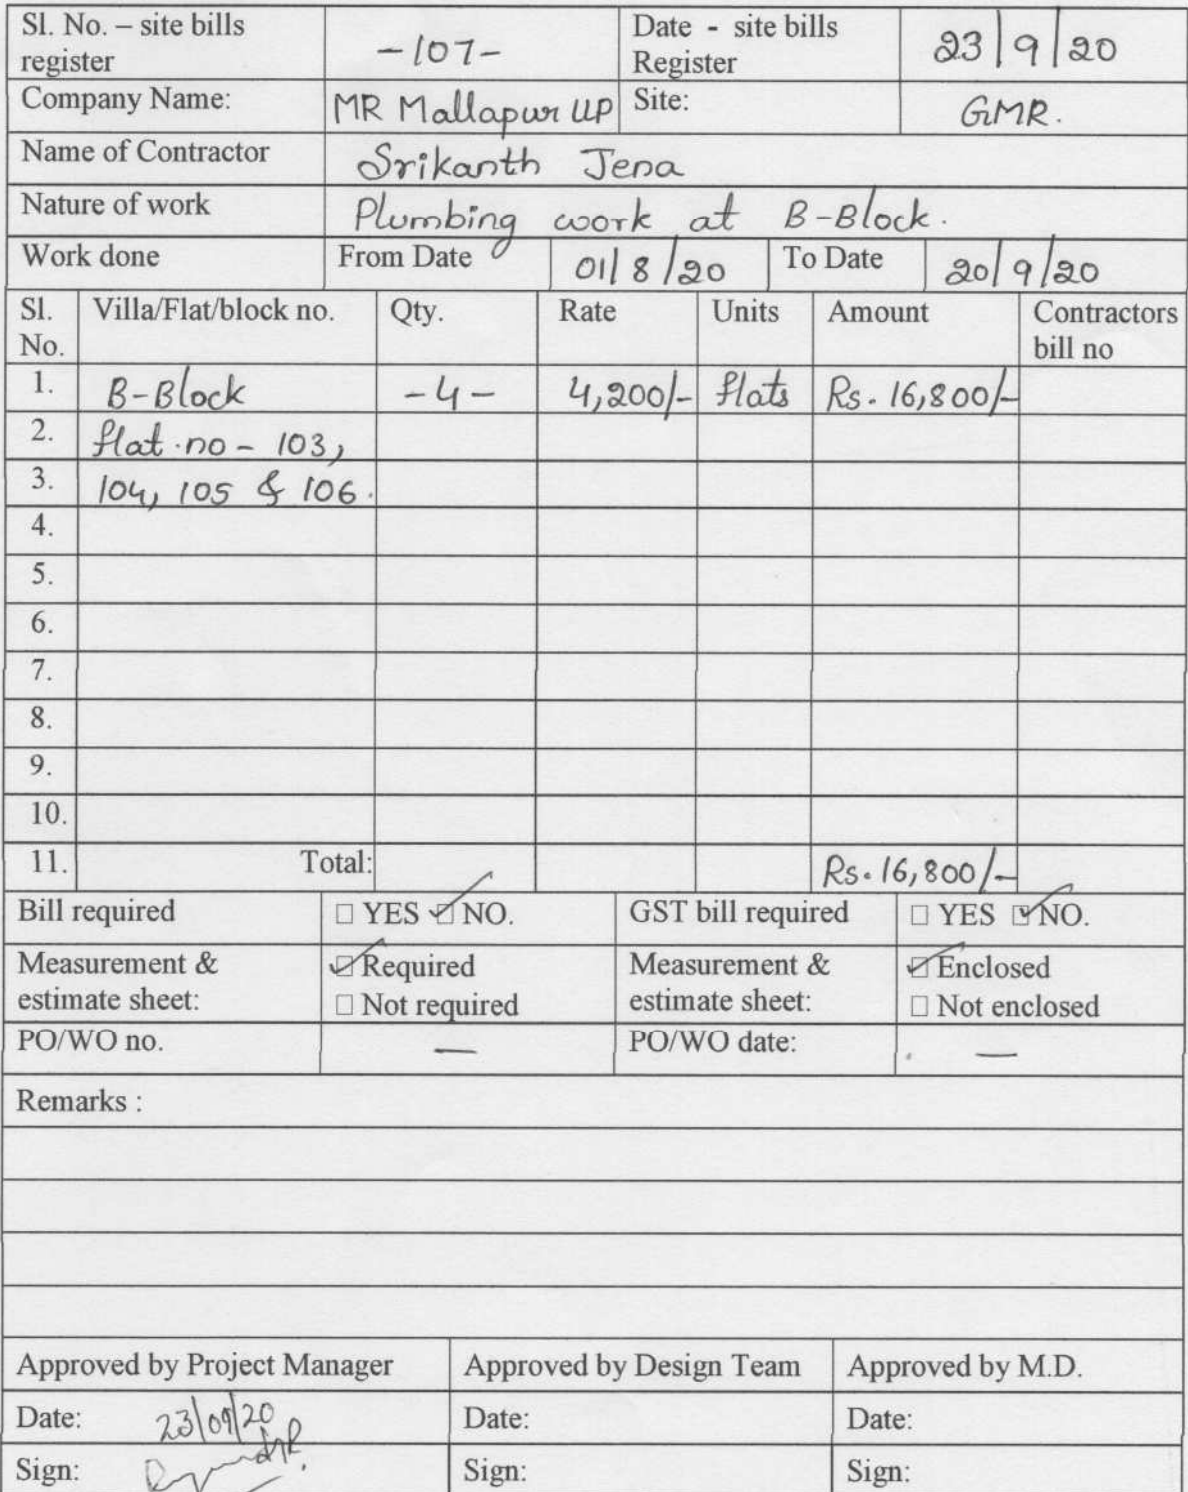 Sl. No. – site bills register -107- Date - site bills Register 23/9/20
Company Name: MR Mallapur LLP Site: GMR.
Name of Contractor Srikanth Jena
Nature of work Plumbing work at B-Block.
Work done From Date 01/8/20 To Date 20/9/20
Sl. No. Villa/Flat/block no. Qty. Rate Units Amount Contractors bill no
1. B-Block -4- 4,200/- flats Rs. 16,800/-
2. flat.no - 103,
3. 104, 105 & 106.
4.
5.
6.
7.
8.
9.
10.
11. Total: Rs. 16,800/-
Bill required □ YES ☑ NO. GST bill required □ YES ☑ NO.
Measurement & estimate sheet: ☑ Required □ Not required Measurement & estimate sheet: ☑ Enclosed □ Not enclosed
PO/WO no. — PO/WO date: —
Remarks :
Approved by Project Manager Approved by Design Team Approved by M.D.
Date: 23/09/20 Date: Date:
Sign: Sign: Sign: